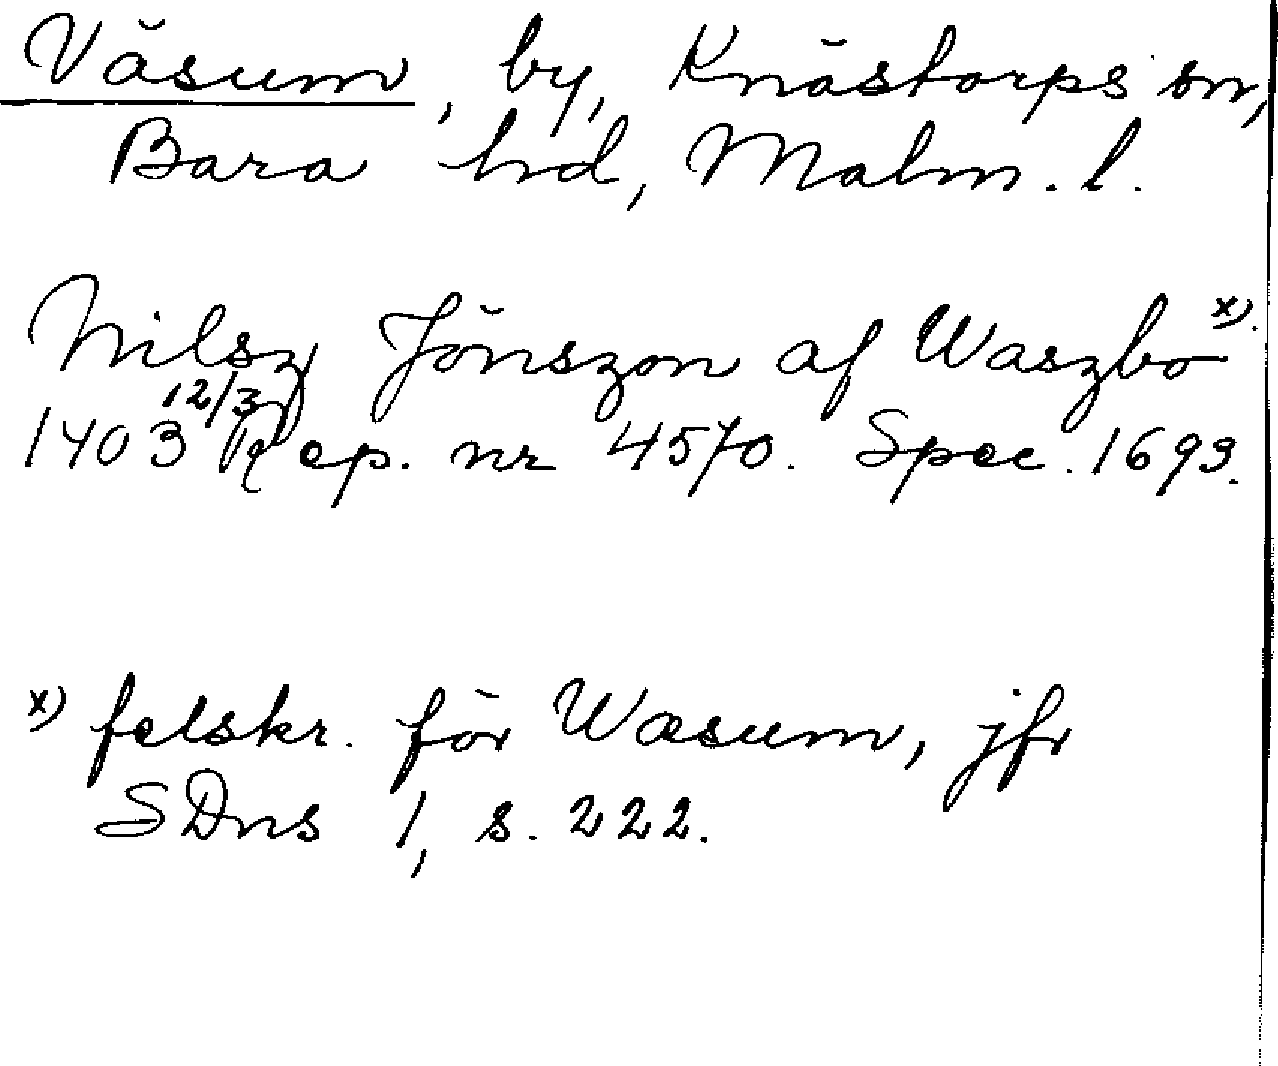 Väsum, by, Knästorps sn,
Bara hd, Malm. l.
Nilsz Jönszon af Waszbo x).
1403 12/3 Rep. nr 4570. Spec. 1693.
x) felskr. för Wæsum, jfr
SDns 1, s. 222.